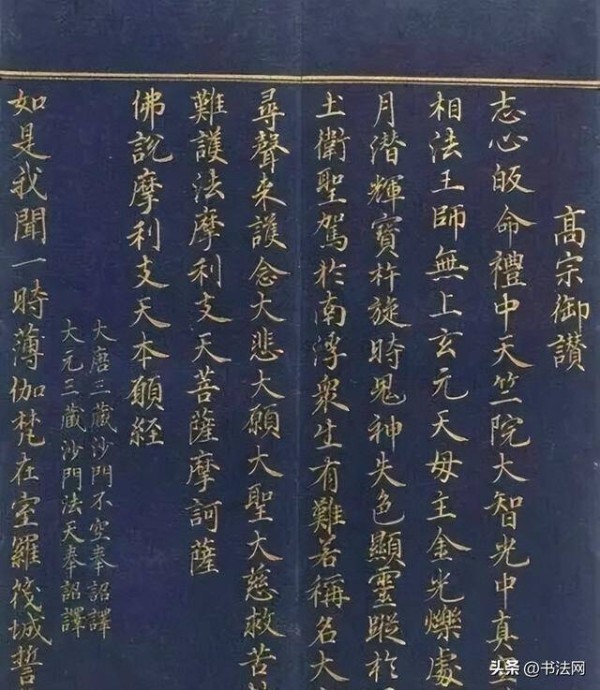 高宗御讚
志心皈命禮中天竺院大智光中真
相法王師無上玄元天母主金光爍處
月潛輝寶杵旋時鬼神失色顯靈蹤於
土衛聖駕於南浮衆生有難若稱名大
尋聲來護念大悲大願大聖大慈救苦
難護法摩利支天菩薩摩訶薩
佛說摩利支天本願経
大唐三藏沙門不空奉詔譯
大元三藏沙門法天奉詔譯
如是我聞一時薄伽梵在室羅筏城誓
头条 @书法网